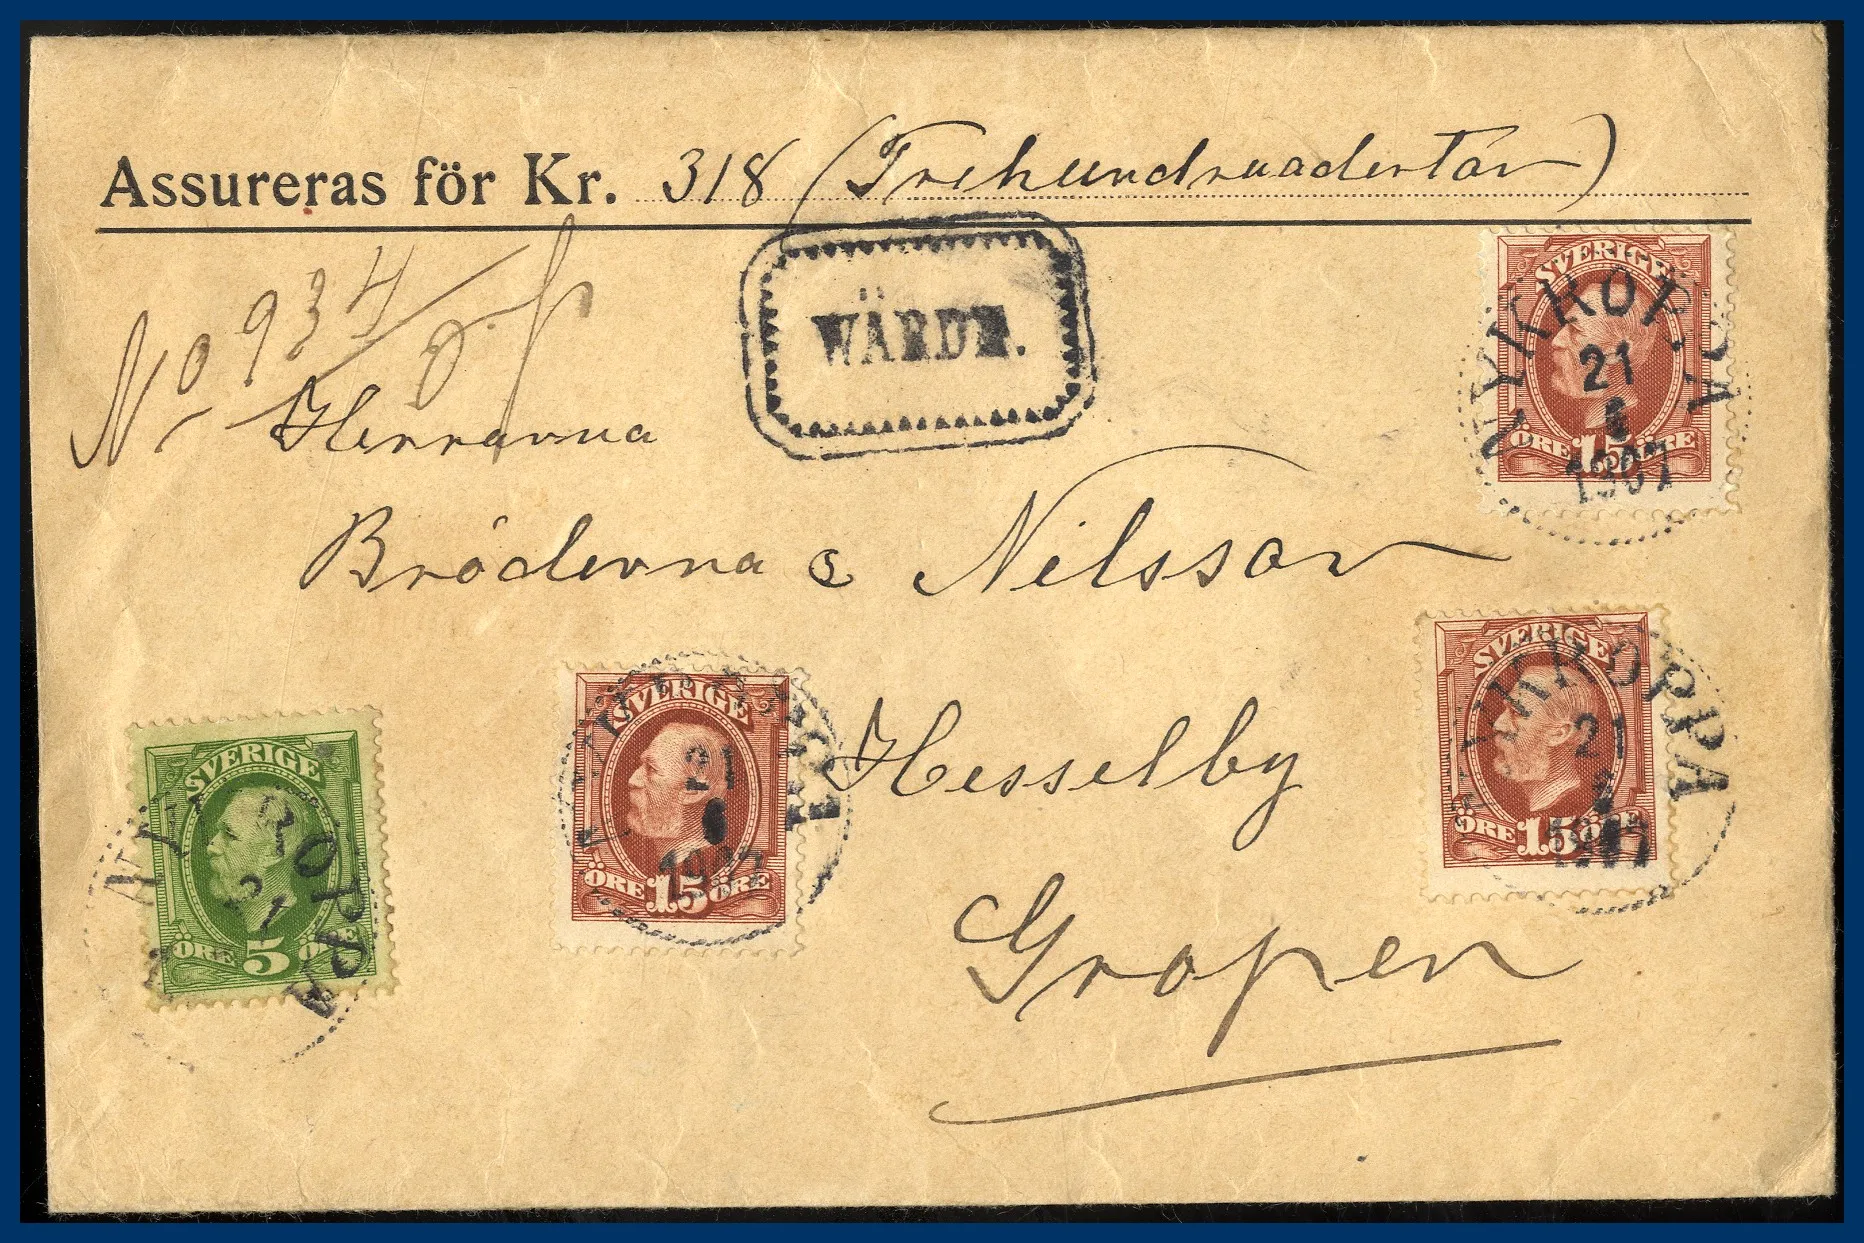 Assureras för Kr. 318 (Trehundraaderton)
No 934
WÄRDE.
Herrarna
Bröderna Nilsson
Hesselby
Gropen
SVERIGE
ÖRE 15 ÖRE
NYKROPPA
21
1907
SVERIGE
ÖRE 15 ÖRE
NYKROPPA
21
1907
SVERIGE
ÖRE 15 ÖRE
21
1907
SVERIGE
ÖRE 5 ÖRE
NYKROPPA
21